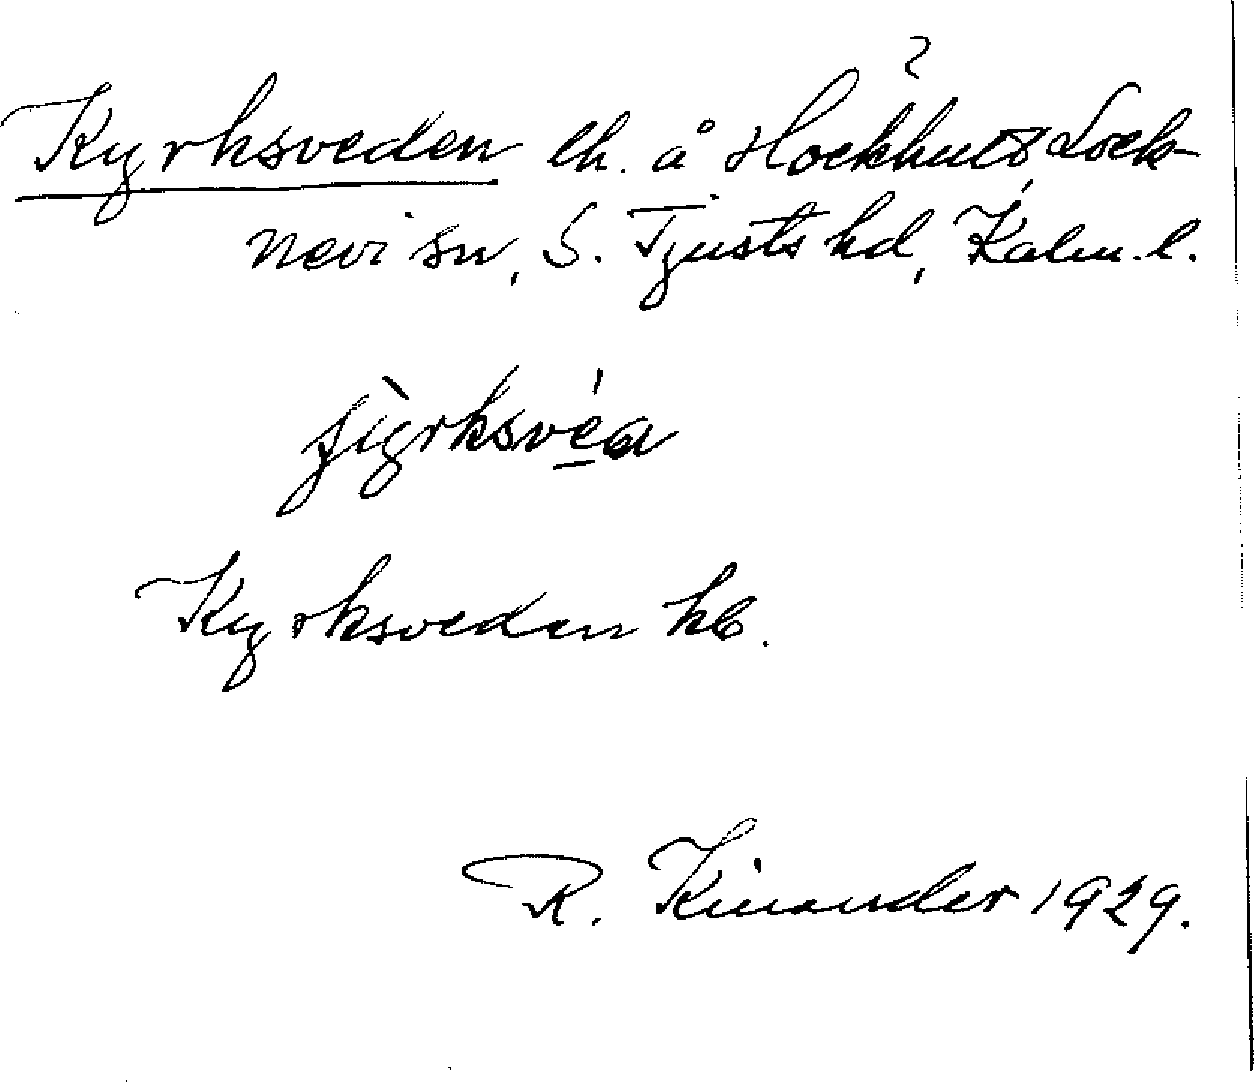 ?
Kyrksveden lh. å Hockhult Lock-
nevi sn, S. Tjusts hd, Kalm. l.
Kyrksveden kb.
R. Kinander 1929.